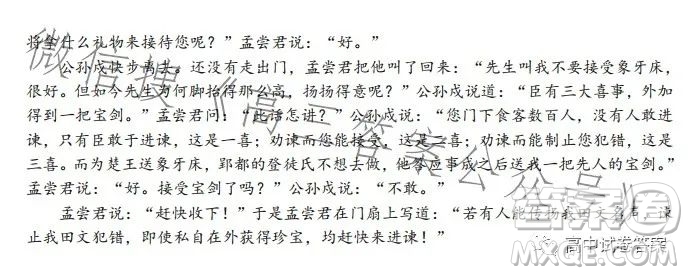 将拿什么礼物来接待您呢？”孟尝君说：“好。”
公孙戍快步离去。还没有走出门，孟尝君把他叫了回来：“先生叫我不要接受象牙床，
很好。但如今先生为何脚抬得那么高，扬扬得意呢？”公孙戍说道：“臣有三大喜事，外加
得到一把宝剑。”孟尝君问：“此话怎讲？”公孙戍说：“您门下食客数百人，没有人敢进
谏，只有臣敢于进谏，这是一喜；劝谏而您能接受，这是二喜；劝谏而能制止您犯错，这是
三喜。而为楚王送象牙床，郢都的登徒氏不想去做，他答应事成之后送我一把先人的宝剑。”
孟尝君说：“好。接受宝剑了吗？”公孙戍说：“不敢。”
孟尝君说：“赶快收下！”于是孟尝君在门扇上写道：“若有人能传扬我田文名声，谏
止我田文犯错，即使私自在外获得珍宝，均赶快来进谏！”
微信搜《高三答案公众号》
答案圈
高中试卷答案